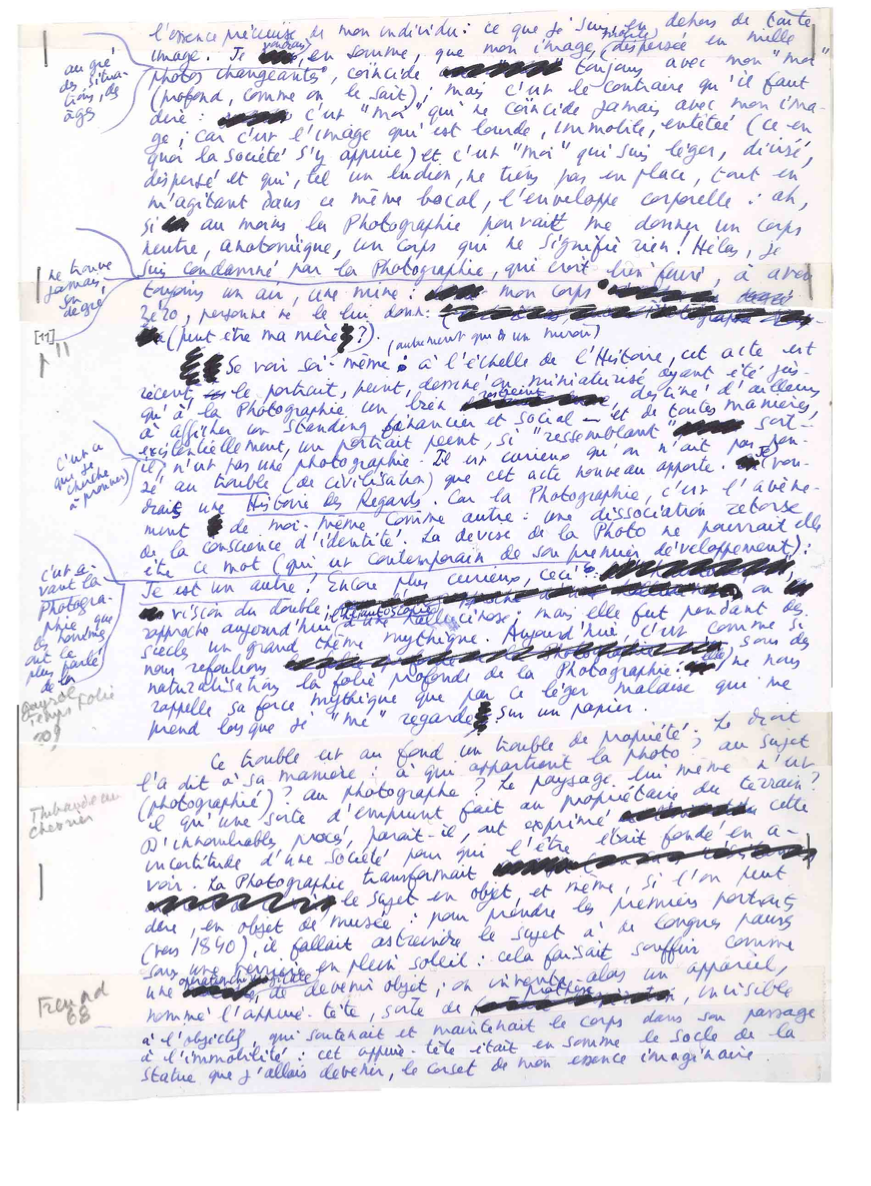 l'essence précieuse de mon individu : ce que je suis, en dehors de toute
image. Je voudrais, en somme, que mon image, (mobile) dispersée en mille
photos changeantes, coïncide toujours avec mon "moi"
au gré
des situa-
tions, des
âges
(profond, comme on le sait) ; mais c'est le contraire qu'il faut
dire : c'est "moi" qui ne coïncide jamais avec mon ima-
ge ; car c'est l'image qui est lourde, immobile, entêtée (ce en
quoi la société s'y appuie) et c'est "moi" qui suis léger, divisé,
dispersé et qui, tel un ludion, ne tiens pas en place, tout en
m'agitant dans ce même bocal, l'enveloppe corporelle : ah,
si au moins la Photographie pouvait me donner un corps
neutre, anatomique, un corps qui ne signifie rien ! Hélas, je
suis condamné par la Photographie, qui croit bien faire, à avoir
ne trouve
jamais
son
degré
toujours un air, une mine : mon corps
zéro, personne ne le lui donne :
(peut être ma mère ?).
[11]
(autrement que ds un miroir)
Se voir soi-même : à l'échelle de l'Histoire, cet acte est
récent, le portrait, peint, dessiné ou miniaturisé, ayant été jus-
qu'à la Photographie un bien restreint destiné d'ailleurs
à afficher un standing financier et social — et de toutes manières,
un portrait peint, si "ressemblant" soit-
il, n'est pas une photographie. Il est curieux qu'on n'ait pas pen-
c'est ce
que je
cherche
à prouver)
sé au trouble (de civilisation) que cet acte nouveau apporte. Je (vou-
drais une Histoire des Regards. Car la Photographie, c'est l'avène-
ment de moi-même comme autre : une dissociation retorse
de la conscience d'identité. La devise de la Photo ne pourrait elle
être ce mot (qui est contemporain de son premier développement) :
Je est un autre ? Encore plus curieux, ceci :
c'est a-
vant la
Photogra-
phie que
les hommes
ont le
plus parlé
de la
vision du double ; on
rapproche aujourd'hui l'héautoscopie d'une hallucinose ; mais elle fut pendant des
siècles un grand thème mythique. Aujourd'hui, c'est comme si
nous refoulions sous des
naturalisations la folie profonde de la Photographie : elle) ne nous
rappelle sa force mythique que par ce léger malaise qui me
prend lorsque je "me" regarde sur un papier.
Folie
Ce trouble est au fond un trouble de propriété. Le droit
l'a dit à sa manière : à qui appartient la photo ? au sujet
(photographié) ? au photographe ? Le paysage lui même n'est
il qu'une sorte d'emprunt fait au propriétaire du terrain ?
Thibaudeau
Chevrier
D'innombrables procès, paraît-il, ont exprimé cette
incertitude d'une société pour qui l'être était fondé en a-
voir. La Photographie transformait
le sujet en objet, et même, si l'on peut
dire, en objet de musée : pour prendre les premiers portraits
(vers 1840), il fallait astreindre le sujet à de longues pauses
sous une verrière en plein soleil : cela faisait souffrir comme
une opération chirurgicale, de devenir objet ; on inventa alors un appareil,
nommé l'appuie-tête, sorte de prothèse, invisible
Freund
68
à l'objectif, qui soutenait et maintenait le corps dans son passage
à l'immobilité : cet appuie-tête était en somme le socle de la
statue que j'allais devenir, le corset de mon essence imaginaire